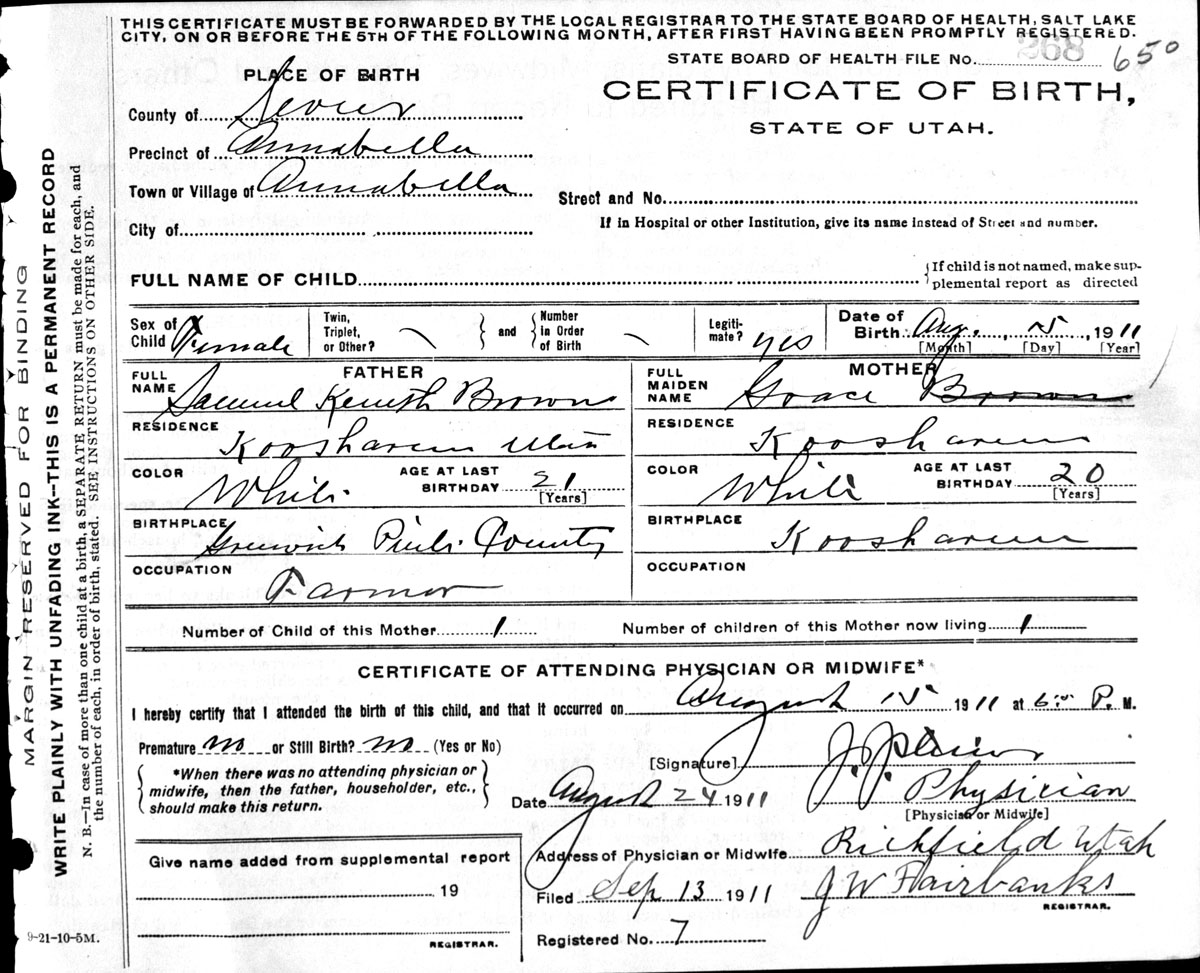 THIS CERTIFICATE MUST BE FORWARDED BY THE LOCAL REGISTRAR TO THE STATE BOARD OF HEALTH, SALT LAKE
CITY, ON OR BEFORE THE 5TH OF THE FOLLOWING MONTH, AFTER FIRST HAVING BEEN PROMPTLY REGISTERED.
STATE BOARD OF HEALTH FILE No. 268 650
PLACE OF BIRTH
CERTIFICATE OF BIRTH,
STATE OF UTAH.
County of Sevier
Precinct of Annabella
Town or Village of Annabella
Street and No.
City of
If in Hospital or other Institution, give its name instead of Street and number.
FULL NAME OF CHILD
{If child is not named, make sup-
plemental report as directed
Sex of Child Female
Twin, Triplet, or Other?
and
Number in Order of Birth
Legiti-mate? yes
Date of Birth Aug. 15 1911
[Month] [Day] [Year]
FATHER
MOTHER
FULL NAME Samuel Kenneth Brown
FULL MAIDEN NAME Grace Brown
RESIDENCE Koosharem Utah
RESIDENCE Koosharem
COLOR White
AGE AT LAST BIRTHDAY 21 [Years]
COLOR White
AGE AT LAST BIRTHDAY 20 [Years]
BIRTHPLACE Greenwich Piute County
BIRTHPLACE Koosharem
OCCUPATION Farmer
OCCUPATION
Number of Child of this Mother 1
Number of children of this Mother now living 1
CERTIFICATE OF ATTENDING PHYSICIAN OR MIDWIFE*
I hereby certify that I attended the birth of this child, and that it occurred on August 15 1911 at 6:00 P. M.
Premature no or Still Birth? no (Yes or No)
{*When there was no attending physician or
midwife, then the father, householder, etc.,
should make this return.}
[Signature] J. J.
Date August 24 1911
Physician
[Physician or Midwife]
Give name added from supplemental report
19
REGISTRAR.
Address of Physician or Midwife Richfield Utah
Filed Sep 13 1911 J W Fairbanks
REGISTRAR.
Registered No. 7
9-21-10-5M.
MARGIN RESERVED FOR BINDING
WRITE PLAINLY WITH UNFADING INK--THIS IS A PERMANENT RECORD
N. B.--In case of more than one child at a birth, a SEPARATE RETURN must be made for each, and
the number of each, in order of birth, stated. SEE INSTRUCTIONS ON OTHER SIDE.